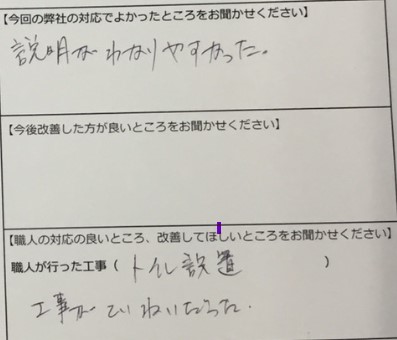 【今回の弊社の対応でよかったところをお聞かせください】
説明がわかりやすかった。
【今後改善した方が良いところをお聞かせください】
【職人の対応の良いところ、改善してほしいところをお聞かせください】
職人が行った工事（ トイレ設置 ）
工事がていねいだった.